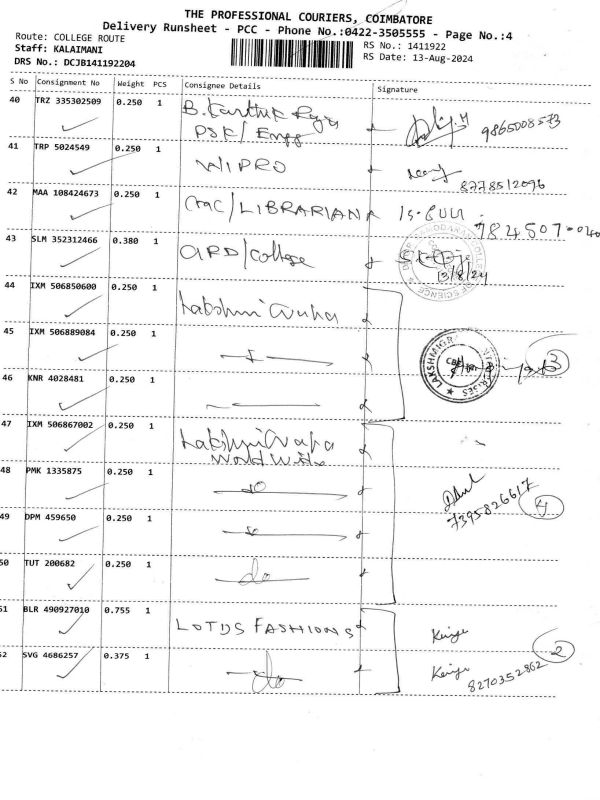 THE PROFESSIONAL COURIERS, COIMBATORE
Delivery Runsheet - PCC - Phone No.:0422-3505555 - Page No.:4
Route: COLLEGE ROUTE
Staff: KALAIMANI
DRS No.: DCJB141192204
RS No.: 1411922
RS Date: 13-Aug-2024
S No Consignment No Weight PCS Consignee Details Signature
40 TRZ 335302509 0.250 1 B. Karthik
PSK/Engg 9865008573
41 TRP 5024549 0.250 1 WIPRO
8778512096
42 MAA 108424673 0.250 1 CMC/LIBRARIANA
43 SLM 352312466 0.380 1 ARD/College
13/8/24
44 IXM 506850600 0.250 1 Lakshmi
45 IXM 506889084 0.250 1
3
46 KNR 4028481 0.250 1
47 IXM 506867002 0.250 1 Lakshmi
World Wide
48 PMK 1335875 0.250 1 do
7395826617 4
49 DPM 459650 0.250 1 do
50 TUT 200682 0.250 1 do
51 BLR 490927010 0.755 1 LOTDS FASHIONS
2
52 SVG 4686257 0.375 1 do
8270352862